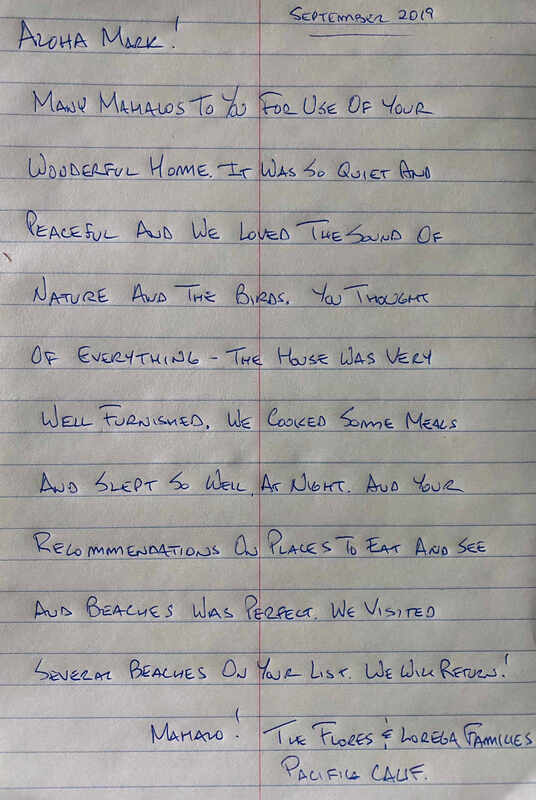 September 2019
Aloha Mark!
Many Mahalos To You For Use Of Your
Wooderful Home. It Was So Quiet And
Peaceful And We Loved The Sound Of
Nature And The Birds. You Thought
Of Everything - The House Was Very
Well Furnished. We Cooked Some Meals
And Slept So Well, At Night. And Your
Recommendations On Places To Eat And See
And Beaches Was Perfect. We Visited
Several Beaches On Your List. We Will Return!
Mahalo! The Flores & Lorega Families
Pacifica Calif.